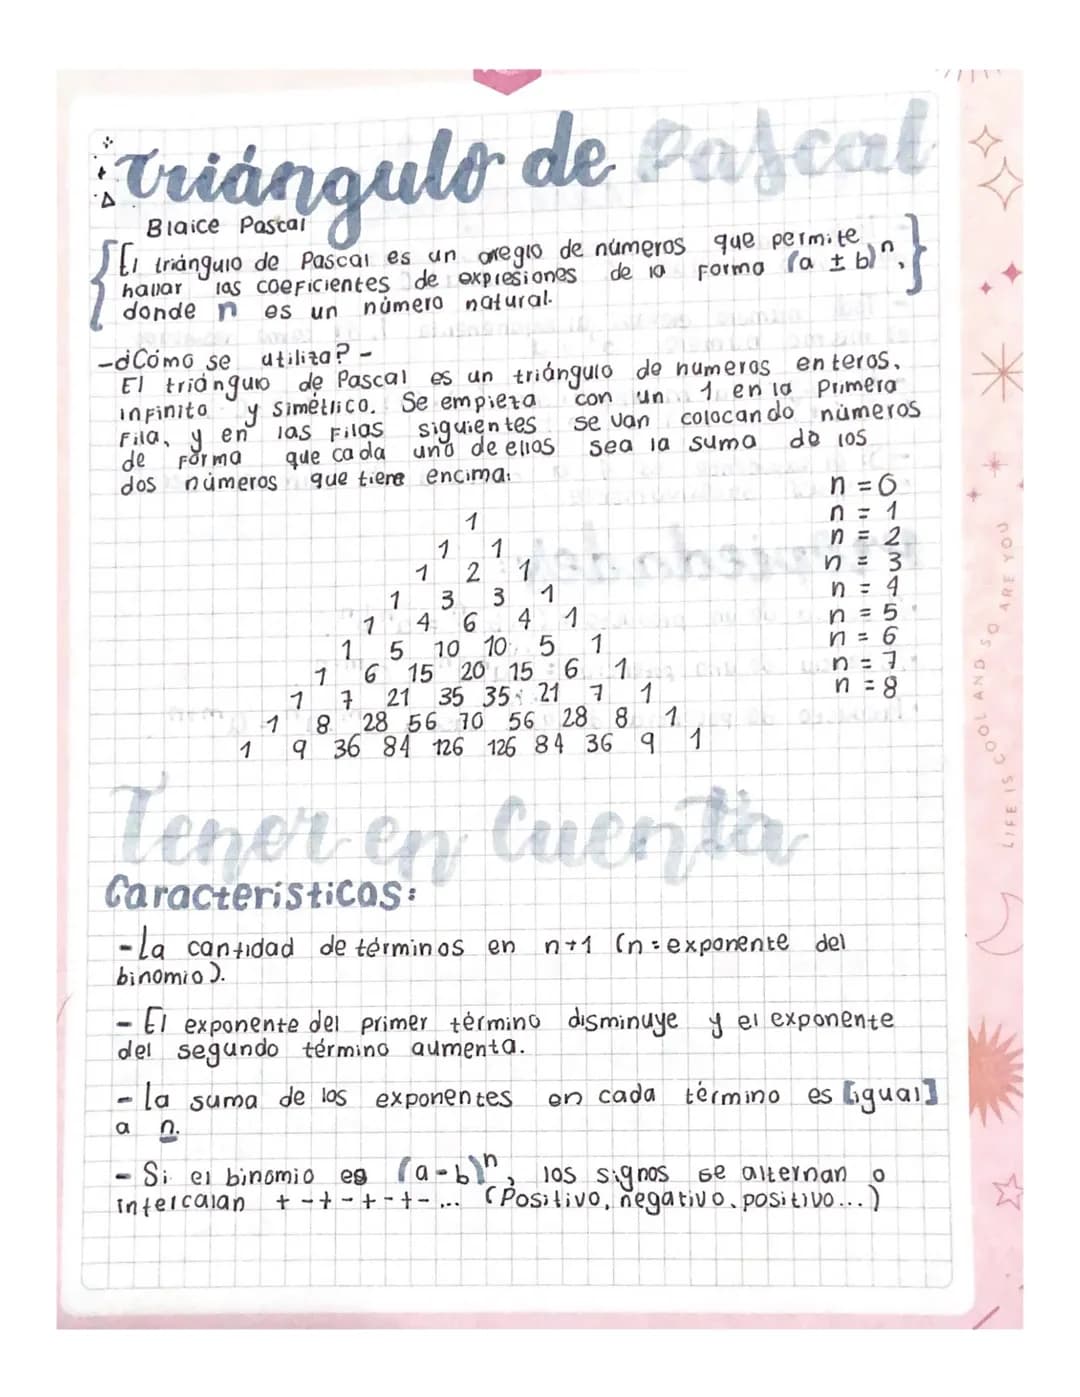 Triángulo de Pascal
Blaice Pascal
El triángulo de Pascal es un aregio de números que permite
hallar las coeficientes de expresiones de la forma (a ± b)ⁿ,
donde n es un número natural.
-¿Cómo se utiliza?-
El triángulo de Pascal es un triángulo de numeros enteros,
infinito y simétrico. Se empieza con un 1 en la Primera
Fila, y en las Filas siguientes se van colocando números
de Forma que cada uno de ellos sea la suma de los
dos números que tiene encima:
n = 0
1 n = 1
1 1 n = 2
1 2 1 n = 3
1 3 3 1 n = 4
1 4 6 4 1 n = 5
1 5 10 10 5 1 n = 6
1 6 15 20 15 6 1 n = 7
1 7 21 35 35 21 7 1 n = 8
1 8 28 56 70 56 28 8 1
1 9 36 84 126 126 84 36 9 1
Tener en Cuenta
Caracteristicas:
-La cantidad de términos en n+1 (n = exponente del
binomio).
- El exponente del primer término disminuye y el exponente
del segundo término aumenta.
- la suma de los exponentes en cada término es [igual]
a n.
- Si el binomio es (a-b)ⁿ, los signos se alternan o
intercalan + - + - + - + - ... (Positivo, negativo, positivo...)
LIFE IS COOL AND SO ARE YOU